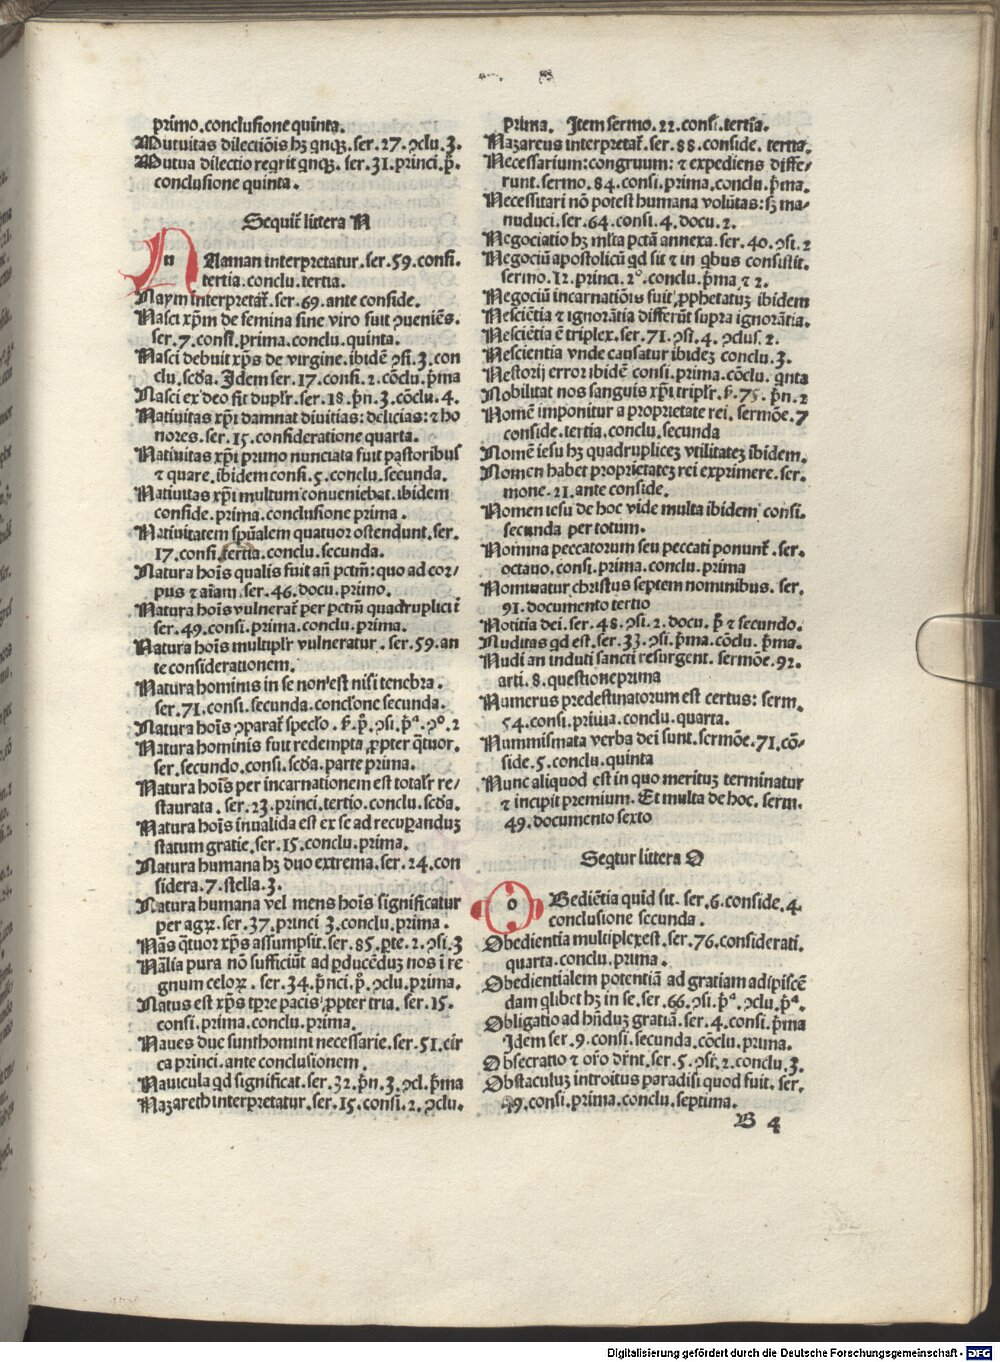 primo.conclusione quinta.
Mutuitas dilectiõis hꝫ qnqꝫ. ser. 27. ꝯclu. 3.
Mutua dilectio reqrit qnqꝫ. ser. 31. princi. p̃.
conclusione quinta.
Sequit̃ littera N
n Naaman interpretatur. ser. 59. consi.
tertia. conclu. tertia.
Naym interpretat̃. ser. 69. ante conside.
Nasci xp̃m de femina sine viro fuit ꝯueniẽs.
ser. 7. consi. prima. conclu. quinta.
Nasci debuit xp̃s de virgine. ibidẽ ꝯsi. 3. con
clu. scd̃a. Idem ser. 17. consi. 2. cõclu. p̃ma
Nasci ex deo fit duplr̃. ser. 18. p̃n. 3. cõclu. 4.
Natiuitas xp̃i damnat diuitias: delicias: ⁊ ho
nores. ser. 15. consideratione quarta.
Natiuitas xp̃i primo nunciata fuit pastoribus
⁊ quare. ibidem consi. 5. conclu. secunda.
Natiuitas xp̃i multum conueniebat. ibidem
conside. prima. conclusione prima.
Natiuitatem sp̃ualem quatuor ostendunt. ser.
17. consi. tertia. conclu. secunda.
Natura hoĩs qualis fuit añ pctm̃: quo ad cor/
pus ⁊ aĩam. ser. 46. docu. primo.
Natura hoĩs vulnerat̃ per pctm̃ quadruplici ĩ
ser. 49. consi. prima. conclu. prima.
Natura hoĩs multiplr̃ vulneratur. ser. 59. an
te considerationem.
Natura hominis in se non est nisi tenebra.
ser. 71. consi. secunda. conclone secunda.
Natura hoĩs ꝯparat̃ specl̃o. ẜ. p̃. ꝯsi. p̃ª. ꝯº. 2
Natura hominis fuit redempta ꝓpter q̃tuor.
ser. secundo. consi. scd̃a. parte prima.
Natura hoĩs per incarnationem est totalr̃ re/
staurata. ser. 23. princi. tertio. conclu. scd̃a.
Natura hoĩs inualida est ex se ad recuꝑanduꝫ
statum gratie. ser. 15. conclu. prima.
Natura humana hꝫ duo extrema. ser. 24. con
sidera. 7. stella. 3.
Natura humana vel mens hoĩs significatur
per agꝝ. ser. 37. princi 3. conclu. prima.
Nãs q̃tuor xp̃s assumpsit. ser. 85. ꝑte. 2. ꝯsi. 3
Nãlia pura nõ sufficiũt ad ꝓducẽduꝫ nos ĩ re
gnum celoꝝ. ser. 34. p̃nci. p̃. ꝯclu. prima.
Natus est xp̃s tp̃re pacis ꝓpter tria. ser. 15.
consi. prima. conclu. prima.
Naues due sunt homini necessarie. ser. 51. cir
ca princi. ante conclusionem.
Nauicula qd significat. ser. 32. p̃n. 3. ꝯcl. p̃ma
Nazareth interpretatur. ser. 15. consi. 2. ꝯclu.
prima. Item sermo. 22. consi. tertia.
Nazareus interpretat̃. ser. 88. conside. tertia.
Necessarium: congruum: ⁊ expediens diffe/
runt. sermo. 84. consi. prima. conclu. p̃ma.
Necessitari nõ potest humana volũtas: sꝫ ma/
nuduci. ser. 64. consi. 4. docu. 2.
Negociatio hꝫ ml̃ta pctã annexa. ser. 40. ꝯsi. 2
Negociũ apostolicũ qd sit ⁊ in qbus consistit.
sermo. 12. princi. 2º. conclu. p̃ma ⁊ 2.
Negociũ incarnatiõis fuit ꝓphetatuꝫ ibidem
Nesciẽtia ⁊ ignorãtia differũt supra ignorãtia.
Nesciẽtia ẽ triplex. ser. 71. ꝯsi. 4. ꝯclus. 2.
Nescientia vnde causatur ibideꝫ conclu. 3.
Nestorij error ibidẽ consi. prima. cõclu. qnta
Nobilitat nos sanguis xp̃i triplr̃. ẜ. 75. p̃n. 2
Nomẽ imponitur a proprietate rei. sermõe. 7
conside. tertia. conclu. secunda
Nomẽ iesu hꝫ quadrupliceꝫ vtilitateꝫ ibidem.
Nomen habet proprietateꝫ rei exprimere. ser.
mone. 21. ante conside.
Nomen iesu de hoc vide multa ibidem consi.
secunda per totum.
Nomina peccatorum seu peccati ponunt̃. ser.
octauo. consi. prima. conclu. prima
Nominatur christus septem nominibus. ser.
91. documento tertio
Notitia dei. ser. 48. ꝯsi. 2. docu. p̃ ⁊ secundo.
Nuditas qd est. ser. 33. ꝯsi. p̃ma. cõclu. p̃ma.
Nudi an induti sancti resurgent. sermõe. 92.
arti. 8. questione prima
Numerus predestinatorum est certus: serm.
54. consi. prima. conclu. quarta.
Nummismata verba dei sunt. sermõe. 71. cõ/
side. 5. conclu. quinta
Nunc aliquod est in quo merituꝫ terminatur
⁊ incipit premium. Et multa de hoc. serm.
49. documento sexto
Seqtur littera O
o Bediẽtia quid sit. ser. 6. conside. 4.
conclusione secunda.
Obedientia multiplex est. ser. 76. considerati.
quarta. conclu. prima.
Obedientialem potentiã ad gratiam adipiscẽ
dam qlibet hꝫ in se. ser. 66. ꝯsi. p̃ª. ꝯclu. p̃ª.
Obligatio ad hñduꝫ gratiã. ser. 4. consi. p̃ma
Idem ser. 9. consi. secunda. cõclu. prima.
Obsecratio ⁊ or̃o dr̃nt. ser. 5. ꝯsi. 2. conclu. 3.
Obstaculuꝫ introitus paradisi quod fuit. ser.
49. consi. prima. conclu. septima.
B 4
Digitalisierung gefördert durch die Deutsche Forschungsgemeinschaft - DFG